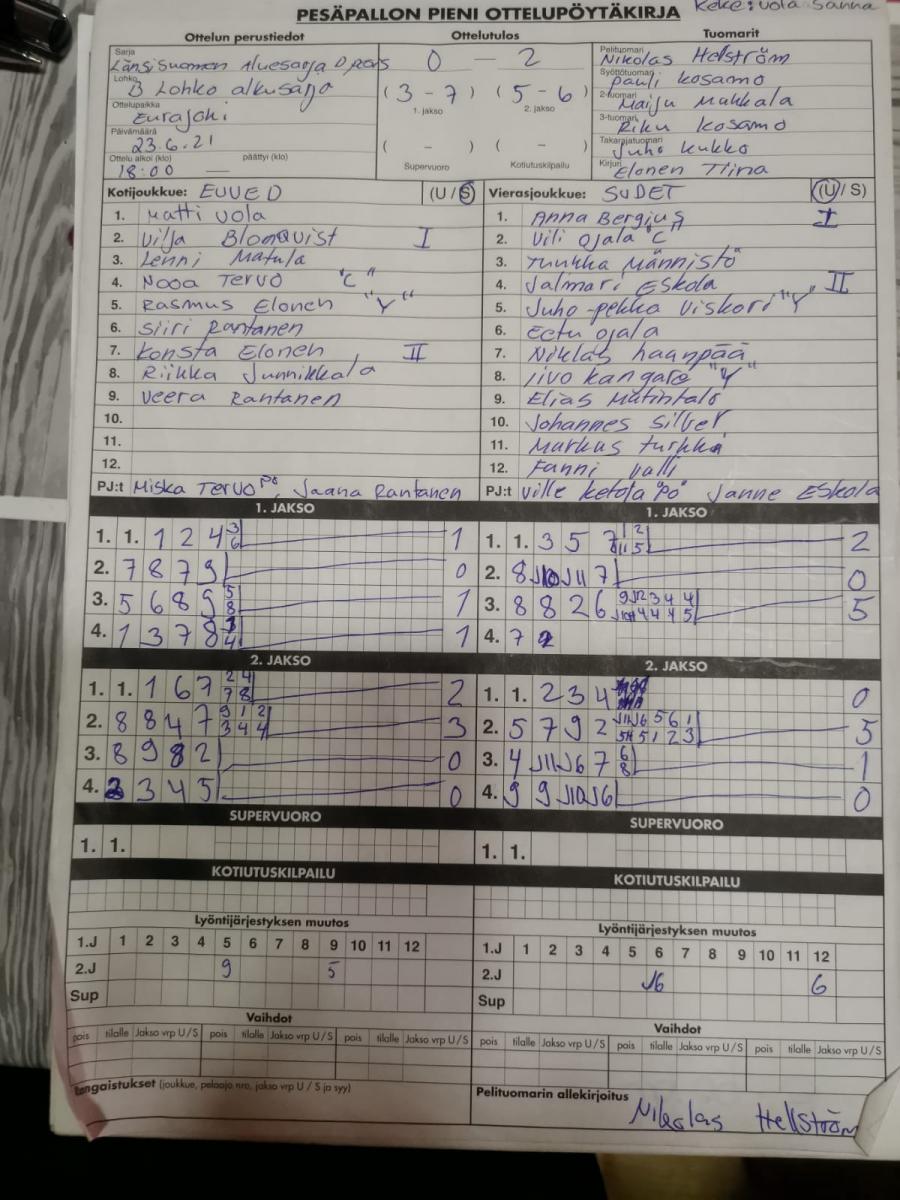 PESÄPALLON PIENI OTTELUPÖYTÄKIRJA Keke: Uola Sanna
Ottelun perustiedot Ottelutulos Tuomarit
Sarja
Länsisuomen Aluesarja D pojs
Lohko
B Lohko alkusarja
Ottelupaikka
Eurajoki
Päivämäärä
23.6.21
Ottelu alkoi (klo) päättyi (klo)
18:00 —
0 – 2
( 3 - 7 ) ( 5 - 6 )
1. jakso 2. jakso
( - ) ( - )
Supervuoro Kotiutuskilpailu
Pelituomari
Nikolas Hellström
Syöttötuomari
Pauli Kosamo
2-tuomari
Maiju Mukkala
3-tuomari
Riku Kosamo
Takarajatuomari
Juho Kukko
Kirjuri
Elonen Tiina
Kotijoukkue: EUVE D (U / S)
1. Matti Uola
2. Vilja Blomqvist I
3. Lenni Matula
4. Nooa Tervo "C"
5. Rasmus Elonen "Y"
6. Siiri Rantanen
7. Konsta Elonen II
8. Riikka Junnikkala
9. Veera Rantanen
10.
11.
12.
PJ:t Miska Tervo PÖ, Jaana Rantanen
Vierasjoukkue: SUDET (U / S)
1. Anna Bergius I
2. Vili Ojala "C"
3. Tuukka Männistö
4. Jalmari Eskola II
5. Juho-pekka Viskori "Y"
6. Eetu Ojala
7. Niklas haanpää
8. Iivo kangare "Y"
9. Elias Mätintalo
10. Johannes Silver
11. Markus turkki
12. Fanni valli
PJ:t Ville ketola "PÖ" Janne Eskola
1. JAKSO
1. 1. 1 2 4 3 6 1
2. 7 8 7 9 0
3. 5 6 8 9 5 8 1
4. 1 3 7 8 4 1
1. JAKSO
1. 1. 3 5 7 1 2 J11 5 2
2. 8 J10 J11 7 0
3. 8 8 2 6 9 J12 3 4 4 4 4 4 5 5
4. 7
2. JAKSO
1. 1. 1 6 7 2 4 7 8 2
2. 8 8 4 7 9 1 2 3 4 4 3
3. 8 9 8 2 0
4. 3 3 4 5 0
2. JAKSO
1. 1. 2 3 4 0
2. 5 7 9 2 J11 J6 5 6 1 5 1 2 3 5
3. 4 J11 J6 7 6 8 1
4. 9 9 J10 J6 0
SUPERVUORO
1. 1.
SUPERVUORO
1. 1.
KOTIUTUSKILPAILU
KOTIUTUSKILPAILU
Lyöntijärjestyksen muutos
1.J 1 2 3 4 5 6 7 8 9 10 11 12
2.J 9 5
Sup
Lyöntijärjestyksen muutos
1.J 1 2 3 4 5 6 7 8 9 10 11 12
2.J J6 6
Sup
Vaihdot
pois tilalle Jakso vrp U/S pois tilalle Jakso vrp U/S pois tilalle Jakso vrp U/S
Vaihdot
pois tilalle Jakso vrp U/S pois tilalle Jakso vrp U/S pois tilalle Jakso vrp U/S
Rangaistukset (joukkue, pelaaja nro, jakso vrp U / S ja syy)
Pelituomarin allekirjoitus
Nikolas Hellström